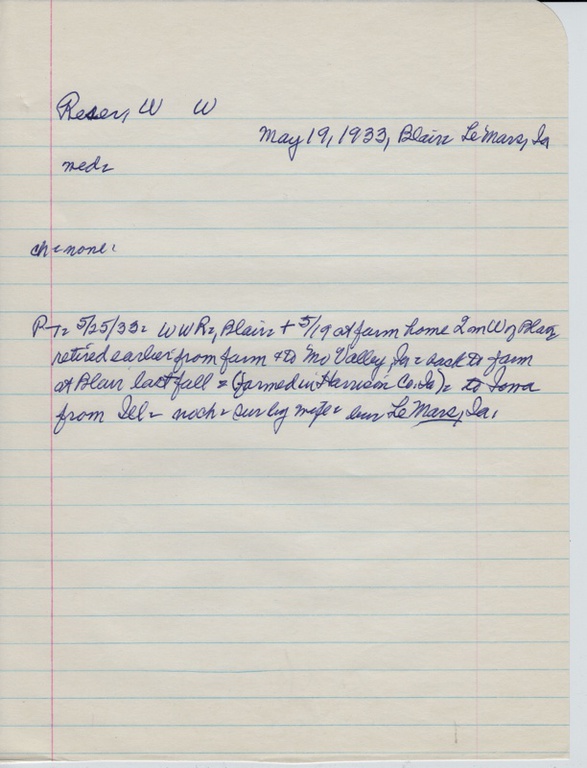 Reser, W W
May 19, 1933, Blair= Le Mars, Ia
med=
ch=none=
P-T= 5/25/33= WWR=, Blair= + 5/19 at farm home 2 m W of Blair
retired earlier from farm + to Mo Valley, Ia= back to farm
at Blair last fall = (farmed in Harrison Co. Ia)= to Iowa
from Ill= no ch= sur by wife= bur Le Mars, Ia.